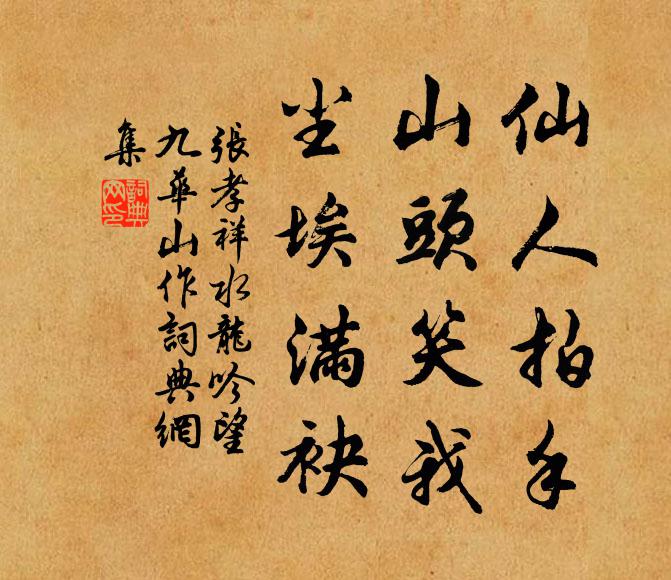 仙人拍手
山頭笑我
尘埃满袂
張孝祥水龍吟望
九華山作詞典網
集
詞典
网印